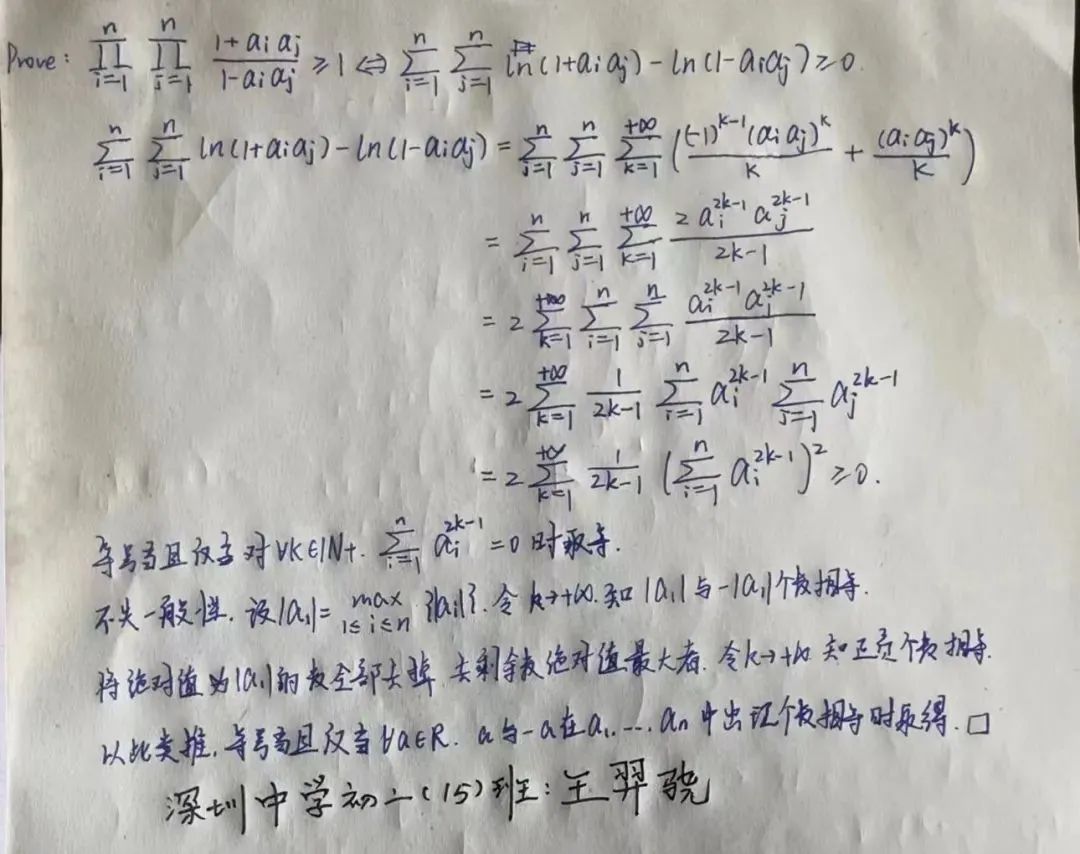 Prove: $\prod_{i=1}^{n} \prod_{j=1}^{n} \frac{1+a_i a_j}{1-a_i a_j} \geq 1 \Leftrightarrow \sum_{i=1}^{n} \sum_{j=1}^{n} \ln(1+a_i a_j) - \ln(1-a_i a_j) \geq 0.$
$\sum_{i=1}^{n} \sum_{j=1}^{n} \ln(1+a_i a_j) - \ln(1-a_i a_j) = \sum_{i=1}^{n} \sum_{j=1}^{n} \sum_{k=1}^{+\infty} \left( \frac{(-1)^{k-1}(a_i a_j)^k}{k} + \frac{(a_i a_j)^k}{k} \right)$
$= \sum_{i=1}^{n} \sum_{j=1}^{n} \sum_{k=1}^{+\infty} \frac{2 a_i^{2k-1} a_j^{2k-1}}{2k-1}$
$= 2 \sum_{k=1}^{+\infty} \sum_{i=1}^{n} \sum_{j=1}^{n} \frac{a_i^{2k-1} a_j^{2k-1}}{2k-1}$
$= 2 \sum_{k=1}^{+\infty} \frac{1}{2k-1} \sum_{i=1}^{n} a_i^{2k-1} \sum_{j=1}^{n} a_j^{2k-1}$
$= 2 \sum_{k=1}^{+\infty} \frac{1}{2k-1} \left( \sum_{i=1}^{n} a_i^{2k-1} \right)^2 \geq 0.$
等号当且仅当对 $\forall k \in \mathbb{N}+$. $\sum_{i=1}^{n} a_i^{2k-1} = 0$ 时取等.
不失一般性. 设 $|a_1| = \max_{1 \leq i \leq n} \{|a_i|\}$. 令 $k \to +\infty$. 知 $|a_1|$ 与 $-|a_1|$ 个数相等.
将绝对值为 $|a_1|$ 的数全部去掉. 去剩余数绝对值最大者. 令 $k \to +\infty$ 知正负个数相等.
以此类推. 等号当且仅当 $\forall a \in R$. $a$ 与 $-a$ 在 $a_1, \dots, a_n$ 中出证个数相等时取得. □
深圳中学初二(15)班: 王羿骁